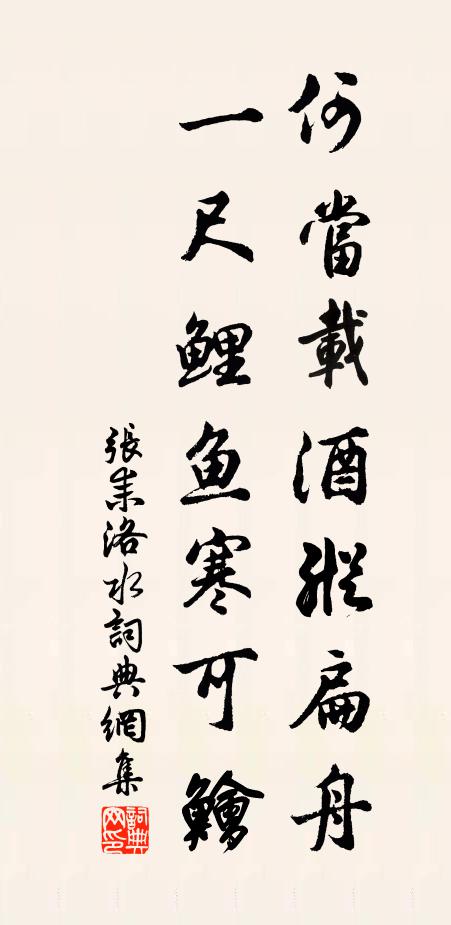 何當載酒縱扁舟
一尺鲤鱼寒可鱠
張耒洛水詞典網集
詞典網印